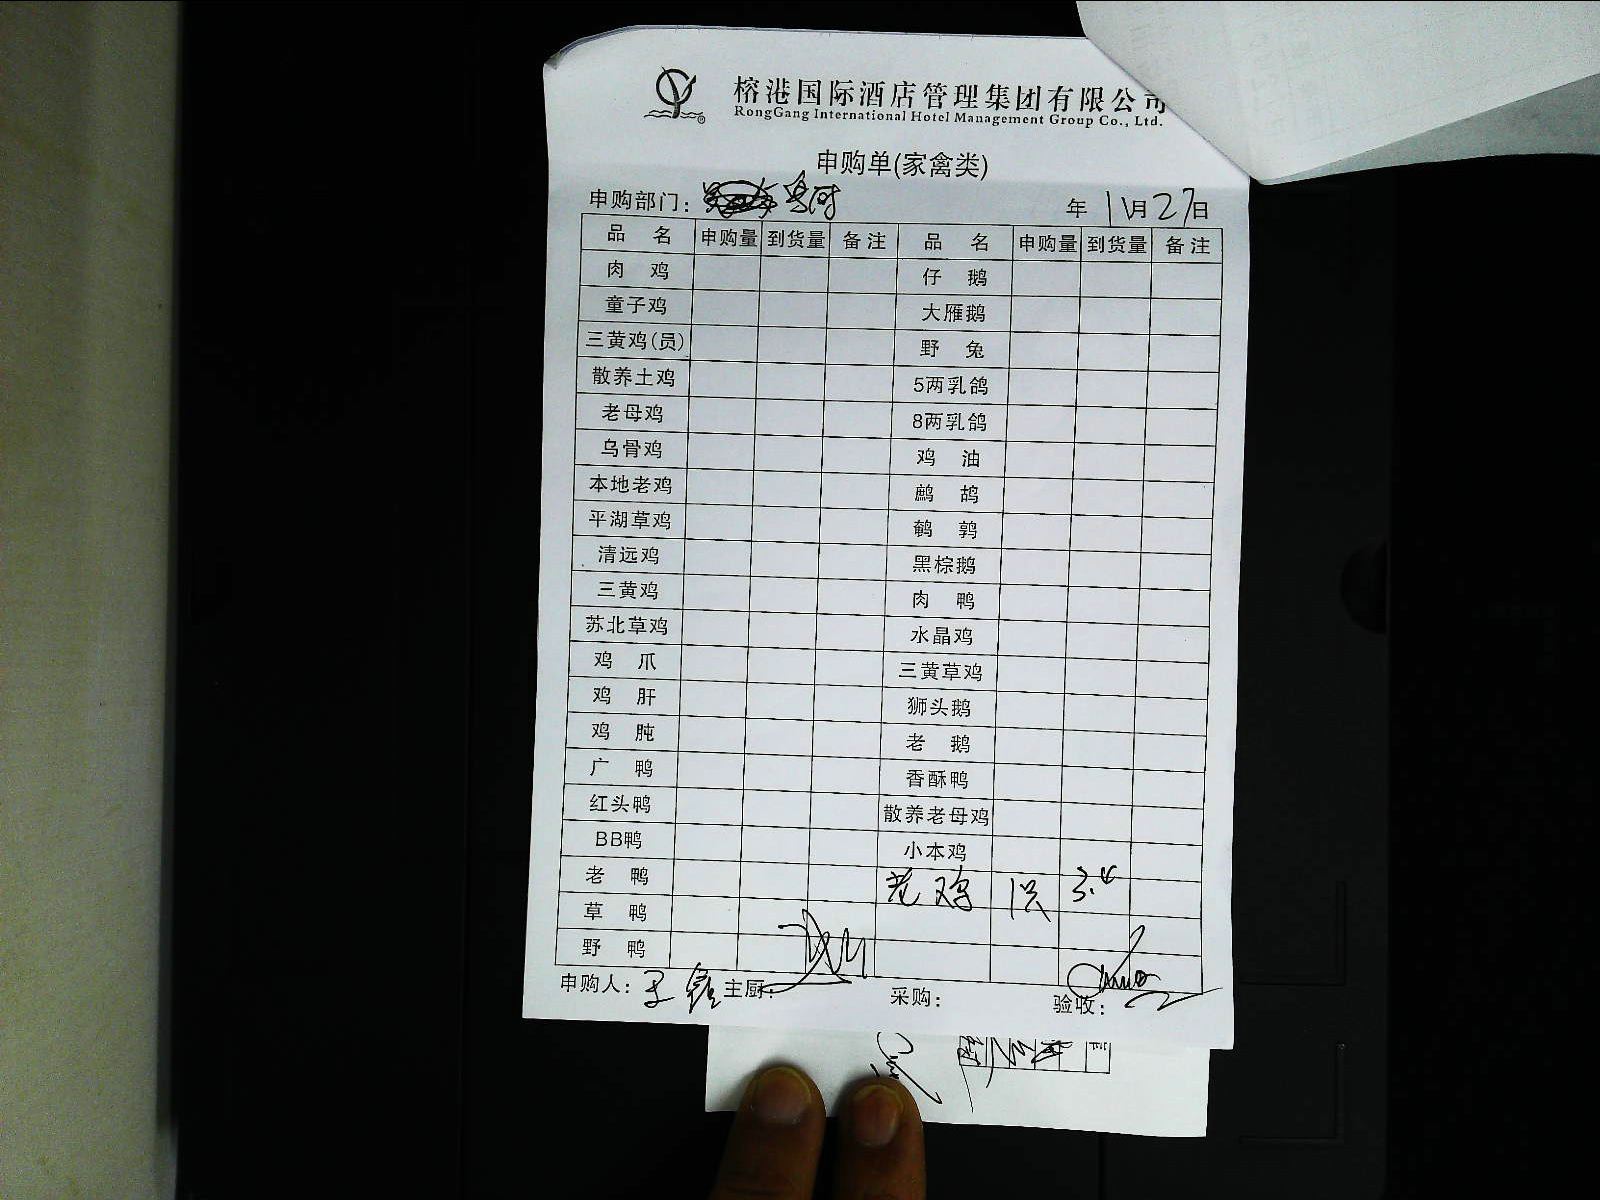 榕港国际酒店管理集团有限公司
RongGang International Hotel Management Group Co., Ltd.
申购单(家禽类)
申购部门: 年 11月27日
品 名 申购量 到货量 备注 品 名 申购量 到货量 备注
肉 鸡 仔 鹅
童子鸡 大雁鹅
三黄鸡(员) 野 兔
散养土鸡 5两乳鸽
老母鸡 8两乳鸽
乌骨鸡 鸡 油
本地老鸡 鹧 鸪
平湖草鸡 鹌 鹑
清远鸡 黑棕鹅
三黄鸡 肉 鸭
苏北草鸡 水晶鸡
鸡 爪 三黄草鸡
鸡 肝 狮头鹅
鸡 肫 老 鹅
广 鸭 香酥鸭
红头鸭 散养老母鸡
BB鸭 小本鸡
老 鸭 老鸡 1只 3.4
草 鸭
野 鸭
申购人: 主厨: 采购: 验收: